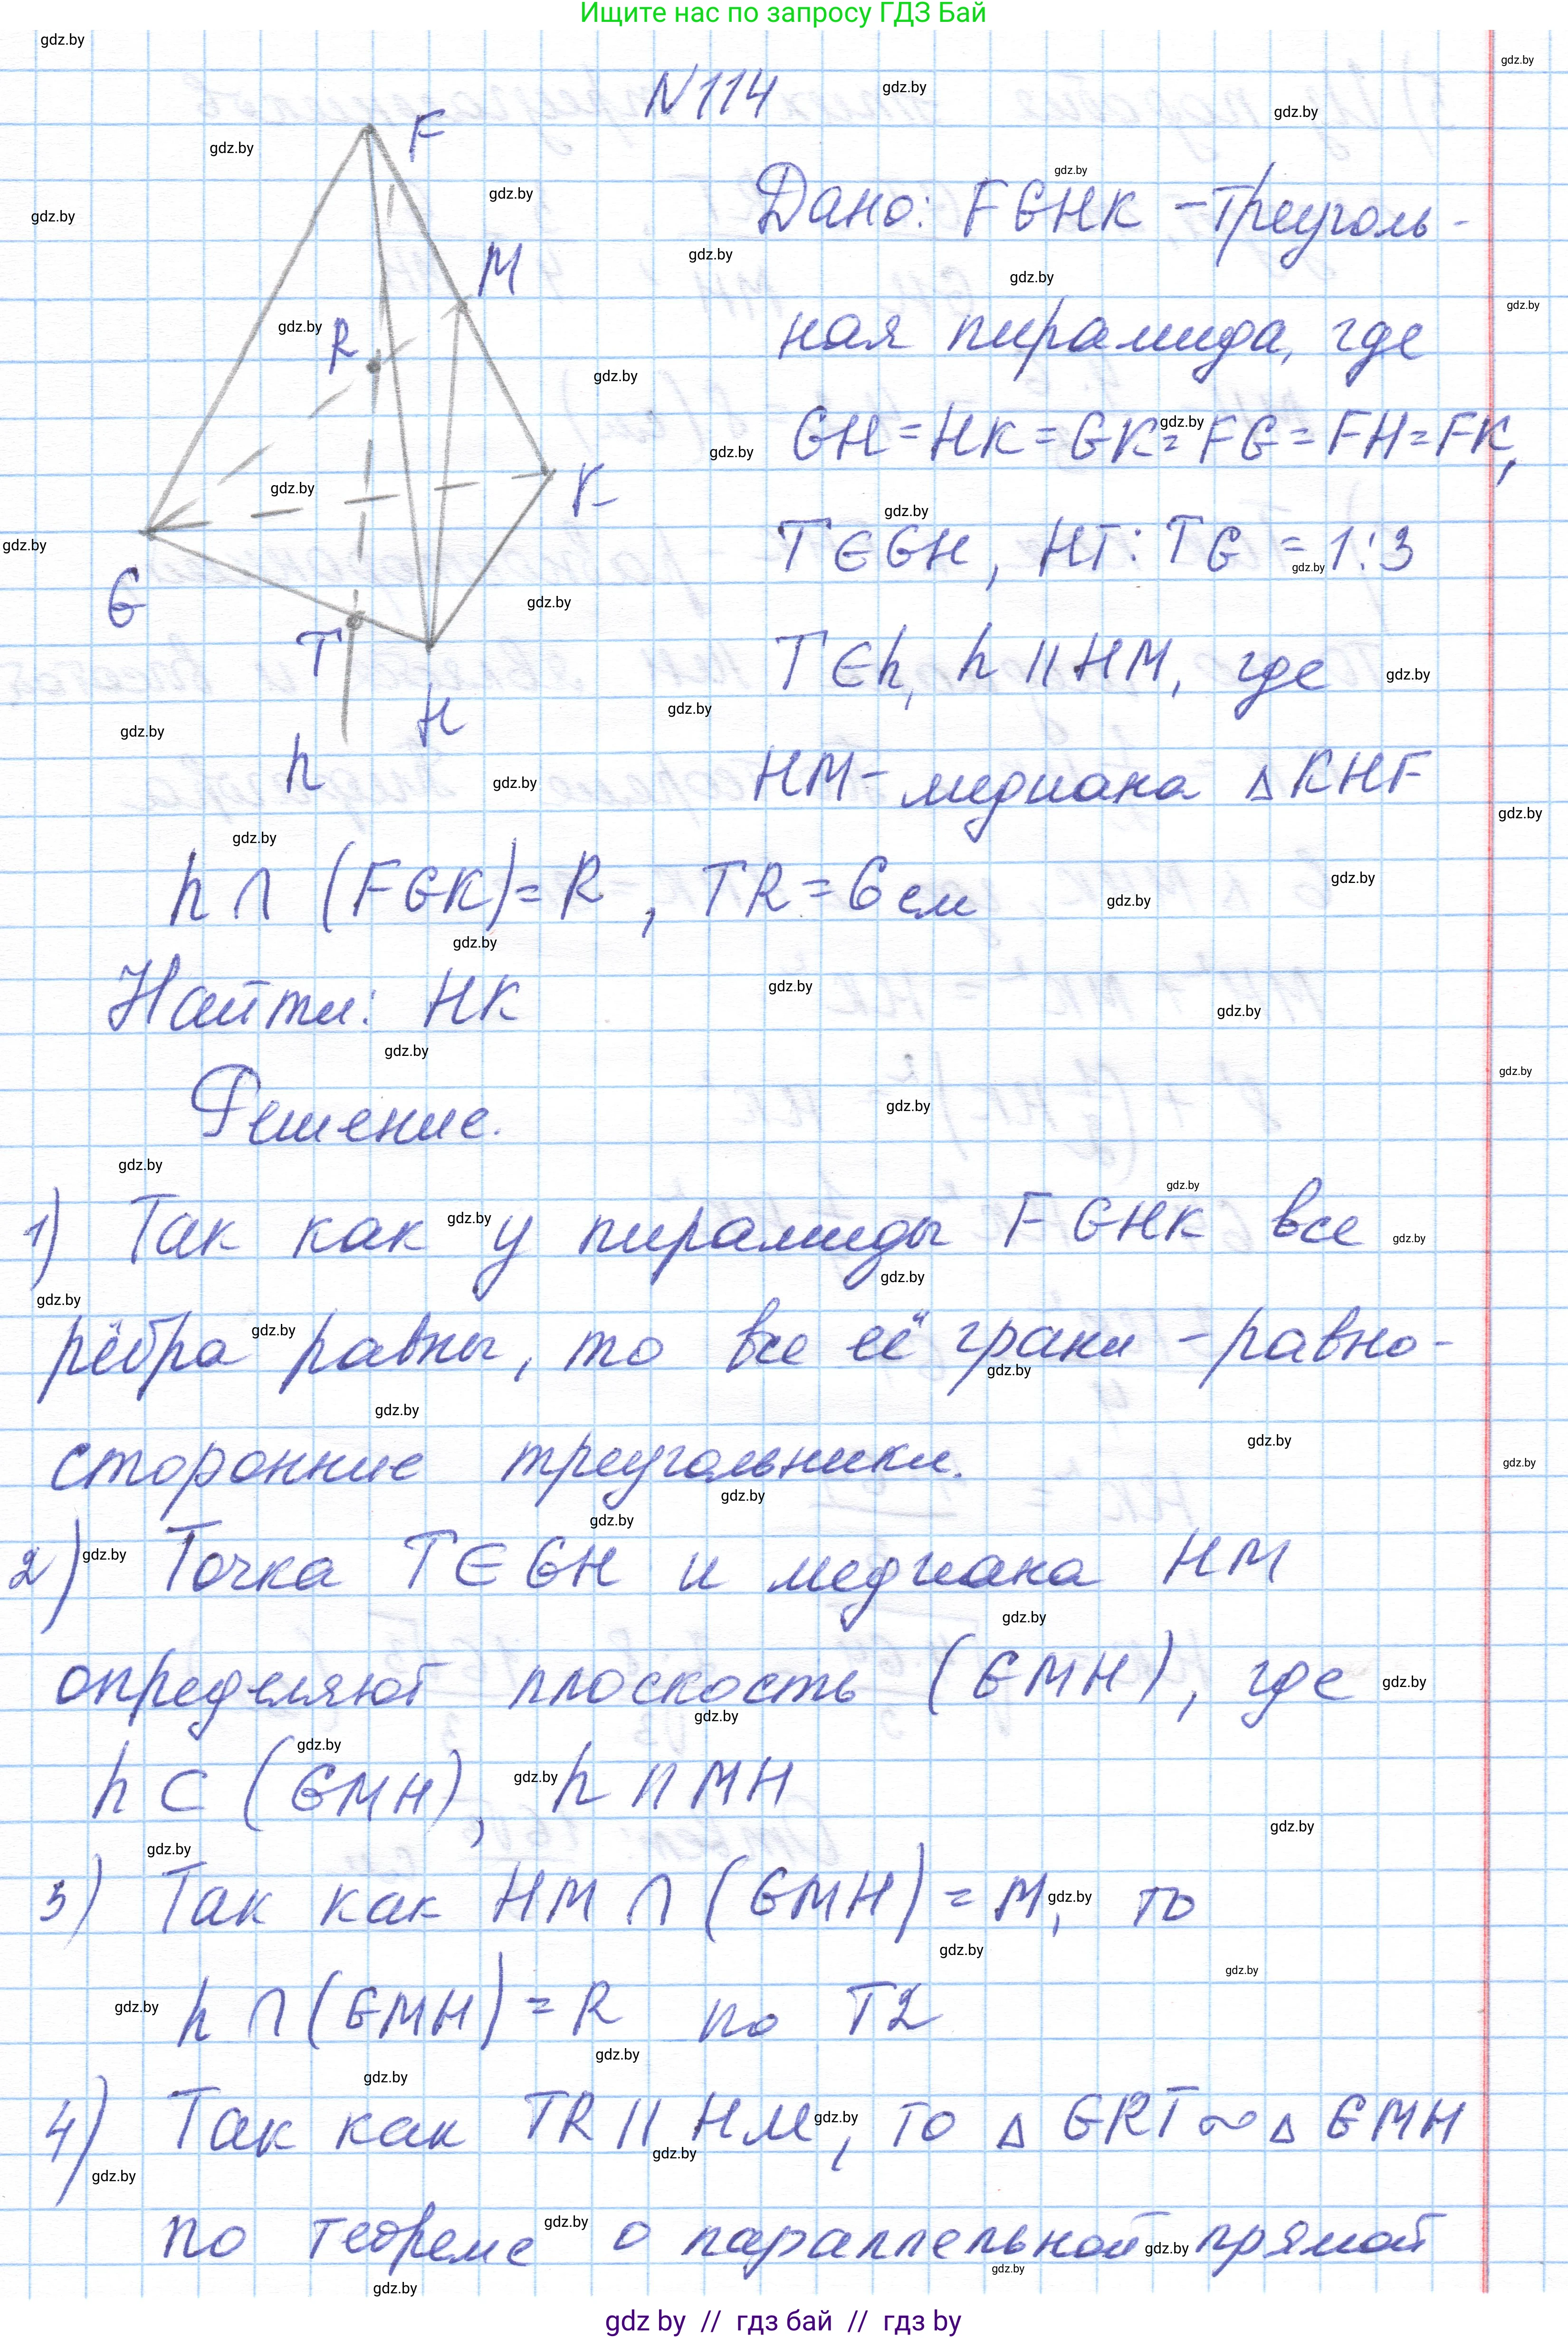 Ищите нас по запросу ГДЗ Бай
N114
F
M
R
K
G
T
H
h
Дано: FGHK - треуголь-
ная пирамида, где
GH = HK = GK = FG = FH = FK,
T ∈ GH, HT : TG = 1:3
T ∈ h, h || HM, где
HM - медиана △ KHF
h ∩ (FGK) = R, TR = 6 см
Найти: HK
Решение.
1) Так как у пирамиды FGHK все
рёбра равны, то все её грани - равно-
сторонние треугольники.
2) Точка T ∈ GH и медиана HM
определяют плоскость (GMH), где
h ⊂ (GMH), h || MH
3) Так как HM ∩ (GMH) = M, то
h ∩ (GMH) = R по T2
4) Так как TR || HM, то △ GRT ∾ △ GMH
по теореме о параллельной прямой
gdz by // гдз бай // гдз by